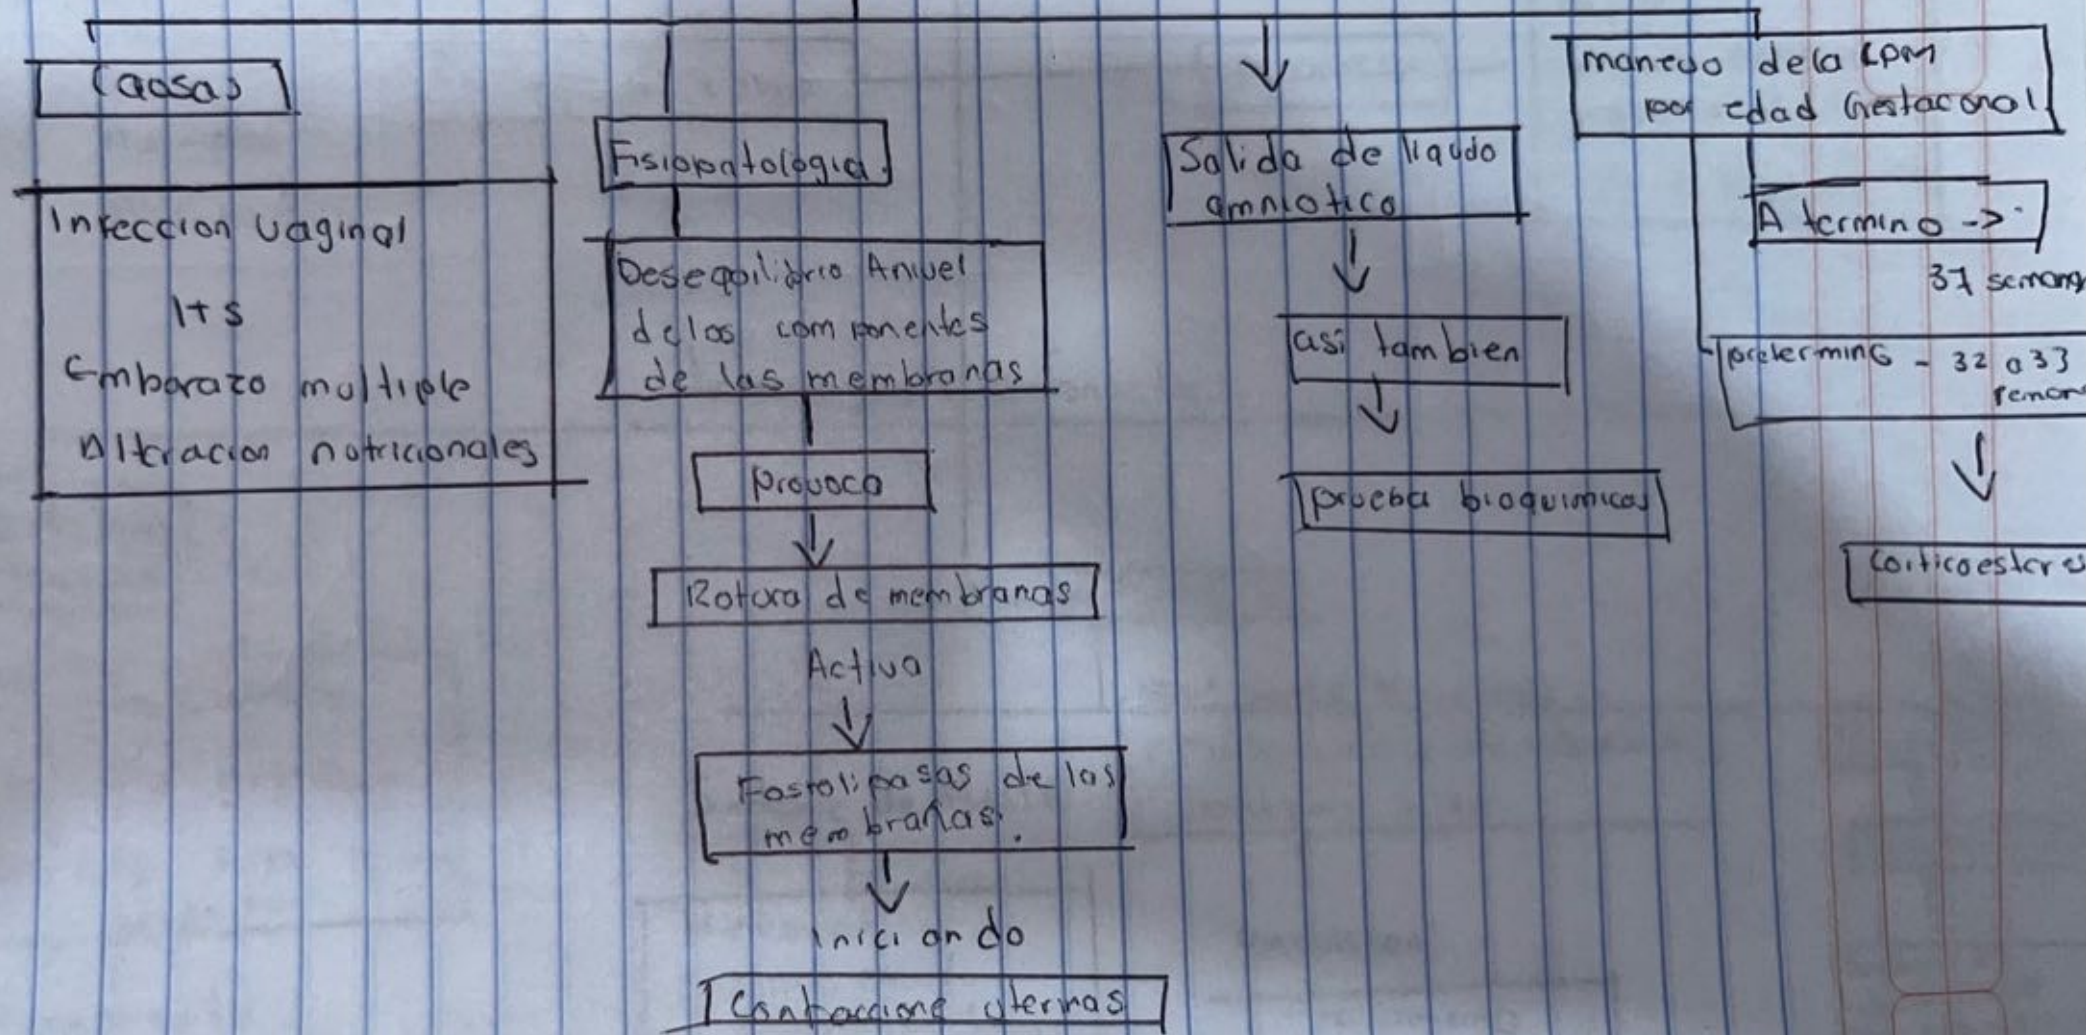 Causas
Infeccion vaginal
ITS
Embarazo multiple
Altracion nutricionales
Fisiopatologia
Desequilibrio Anivel
delos componentes
de las membranas
Provoca
Rotura de membranas
Activa
Fosfolipasas de las
membranas.
iniciando
Contraccione uterinas
Salida de liqudo
amniotico
asi tambien
prueba bioquimicas
manejo dela
por edad Gestaconal
A termino ->
37
pretermino - 32 a 33